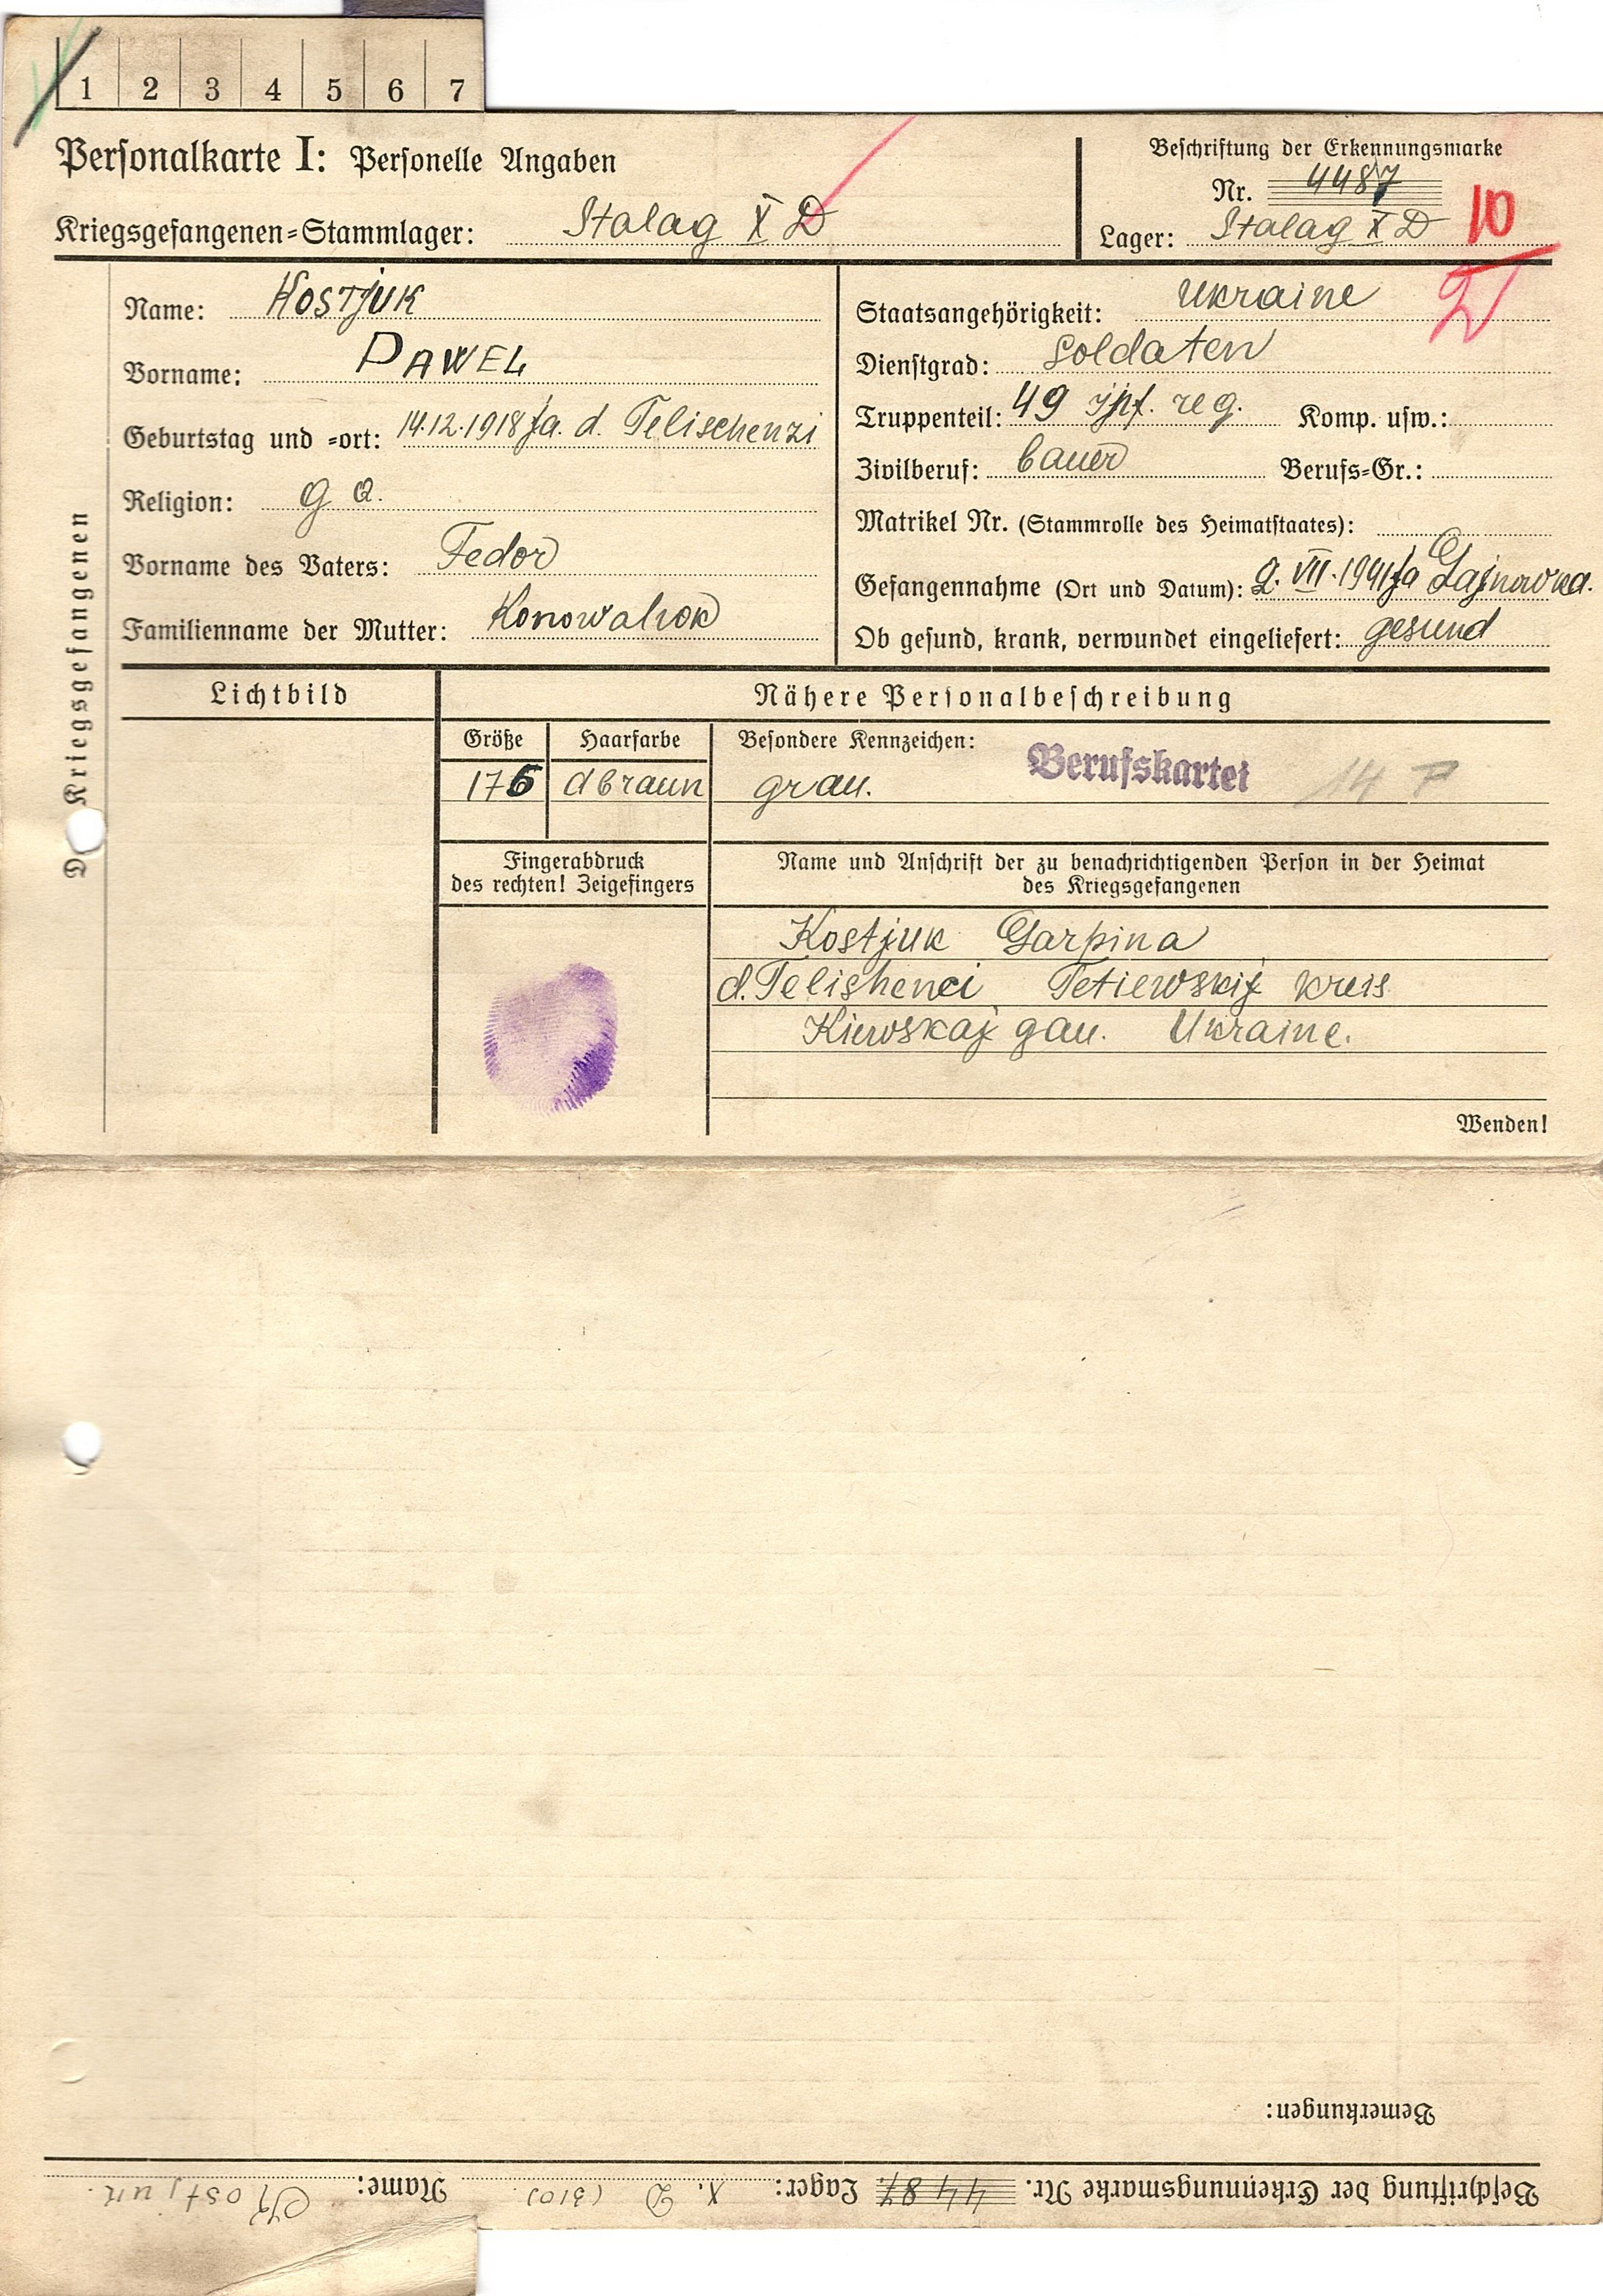 1 2 3 4 5 6 7
Personalkarte I: Personelle Angaben
Kriegsgefangenen-Stammlager: Stalag X D
Beschriftung der Erkennungsmarke
Nr. 4487
Lager: Stalag X D
10
D
Des Kriegsgefangenen
Name: Kostjuk
Vorname: PAWEL
Geburtstag und -ort: 14.12.1918 Ja. d. Telischenzi
Religion: g. o.
Vorname des Vaters: Fedor
Familienname der Mutter: Konowalyok
Staatsangehörigkeit: Ukraine
Dienstgrad: Soldaten
Truppenteil: 49 reg. Komp. usw.:
Zivilberuf: bauer Berufs-Gr.:
Matrikel Nr. (Stammrolle des Heimatstaates):
Gefangennahme (Ort und Datum): 9. VII. 1941 Ja Gajnowka.
Ob gesund, krank, verwundet eingeliefert: gesund
Lichtbild
Nähere Personalbeschreibung
Größe Haarfarbe Besondere Kennzeichen:
176 dbraun grau.
Berufskartei 14 F
Fingerabdruck
des rechten! Zeigefingers
Name und Anschrift der zu benachrichtigenden Person in der Heimat
des Kriegsgefangenen
Kostjuk Garpina
d. Telishenci Tetiewskij kreis
Kiewskaj gau. Ukraine.
Wenden!
Bemerkungen:
Beschriftung der Erkennungsmarke Nr. 4487 Lager: X. D (310) Name: Kostjuk.